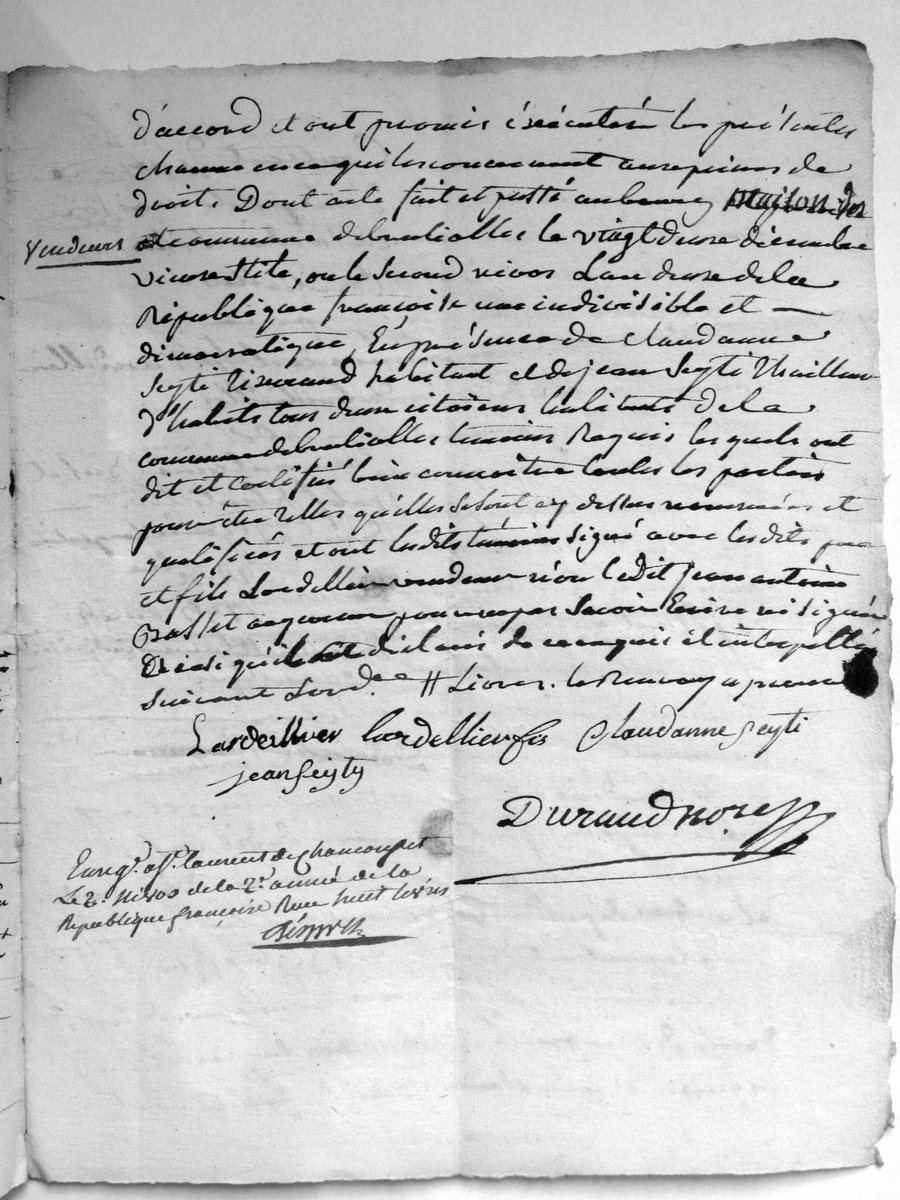 d'accord et ont promis éxécuter les présentes
chacune en ce qui les concernent aux peines de
droit. Dont acte fait et passé au bourg Maison des
Vendeurs et commune de le vingt deux décembre
vieux stile, ou le second nivos L'an deux de la
République françoise une indivisible et
démocratique, En présence de Claudanne
Seyti Tisserand habitant et de jean Seyti Thailleur
d'habits tous deux citoiens habitants de la
commune de témoins Requis les quels ont
dit et certifié bien connoitre toutes les parties
pour être telles qu'elles se sont cy dessus nommées et
qualifiées et ont les dits témoins signé avec les dits père
et fils Lardellier vendeurs non le dit jean antoine
acquereur pour ne pas savoir Ecrire ni signer
De ce qu'il ont déclaré de ce enquis et interpellé
suivant L'ord.ce
Lardeillier lardellier fis Claudanne seyti
jean seyty
Durand nore
Enreg.é à S.t laurent de Chamousset
Le 2. nivos de la 2.e année de la
Republique françoise Reçu huit livres